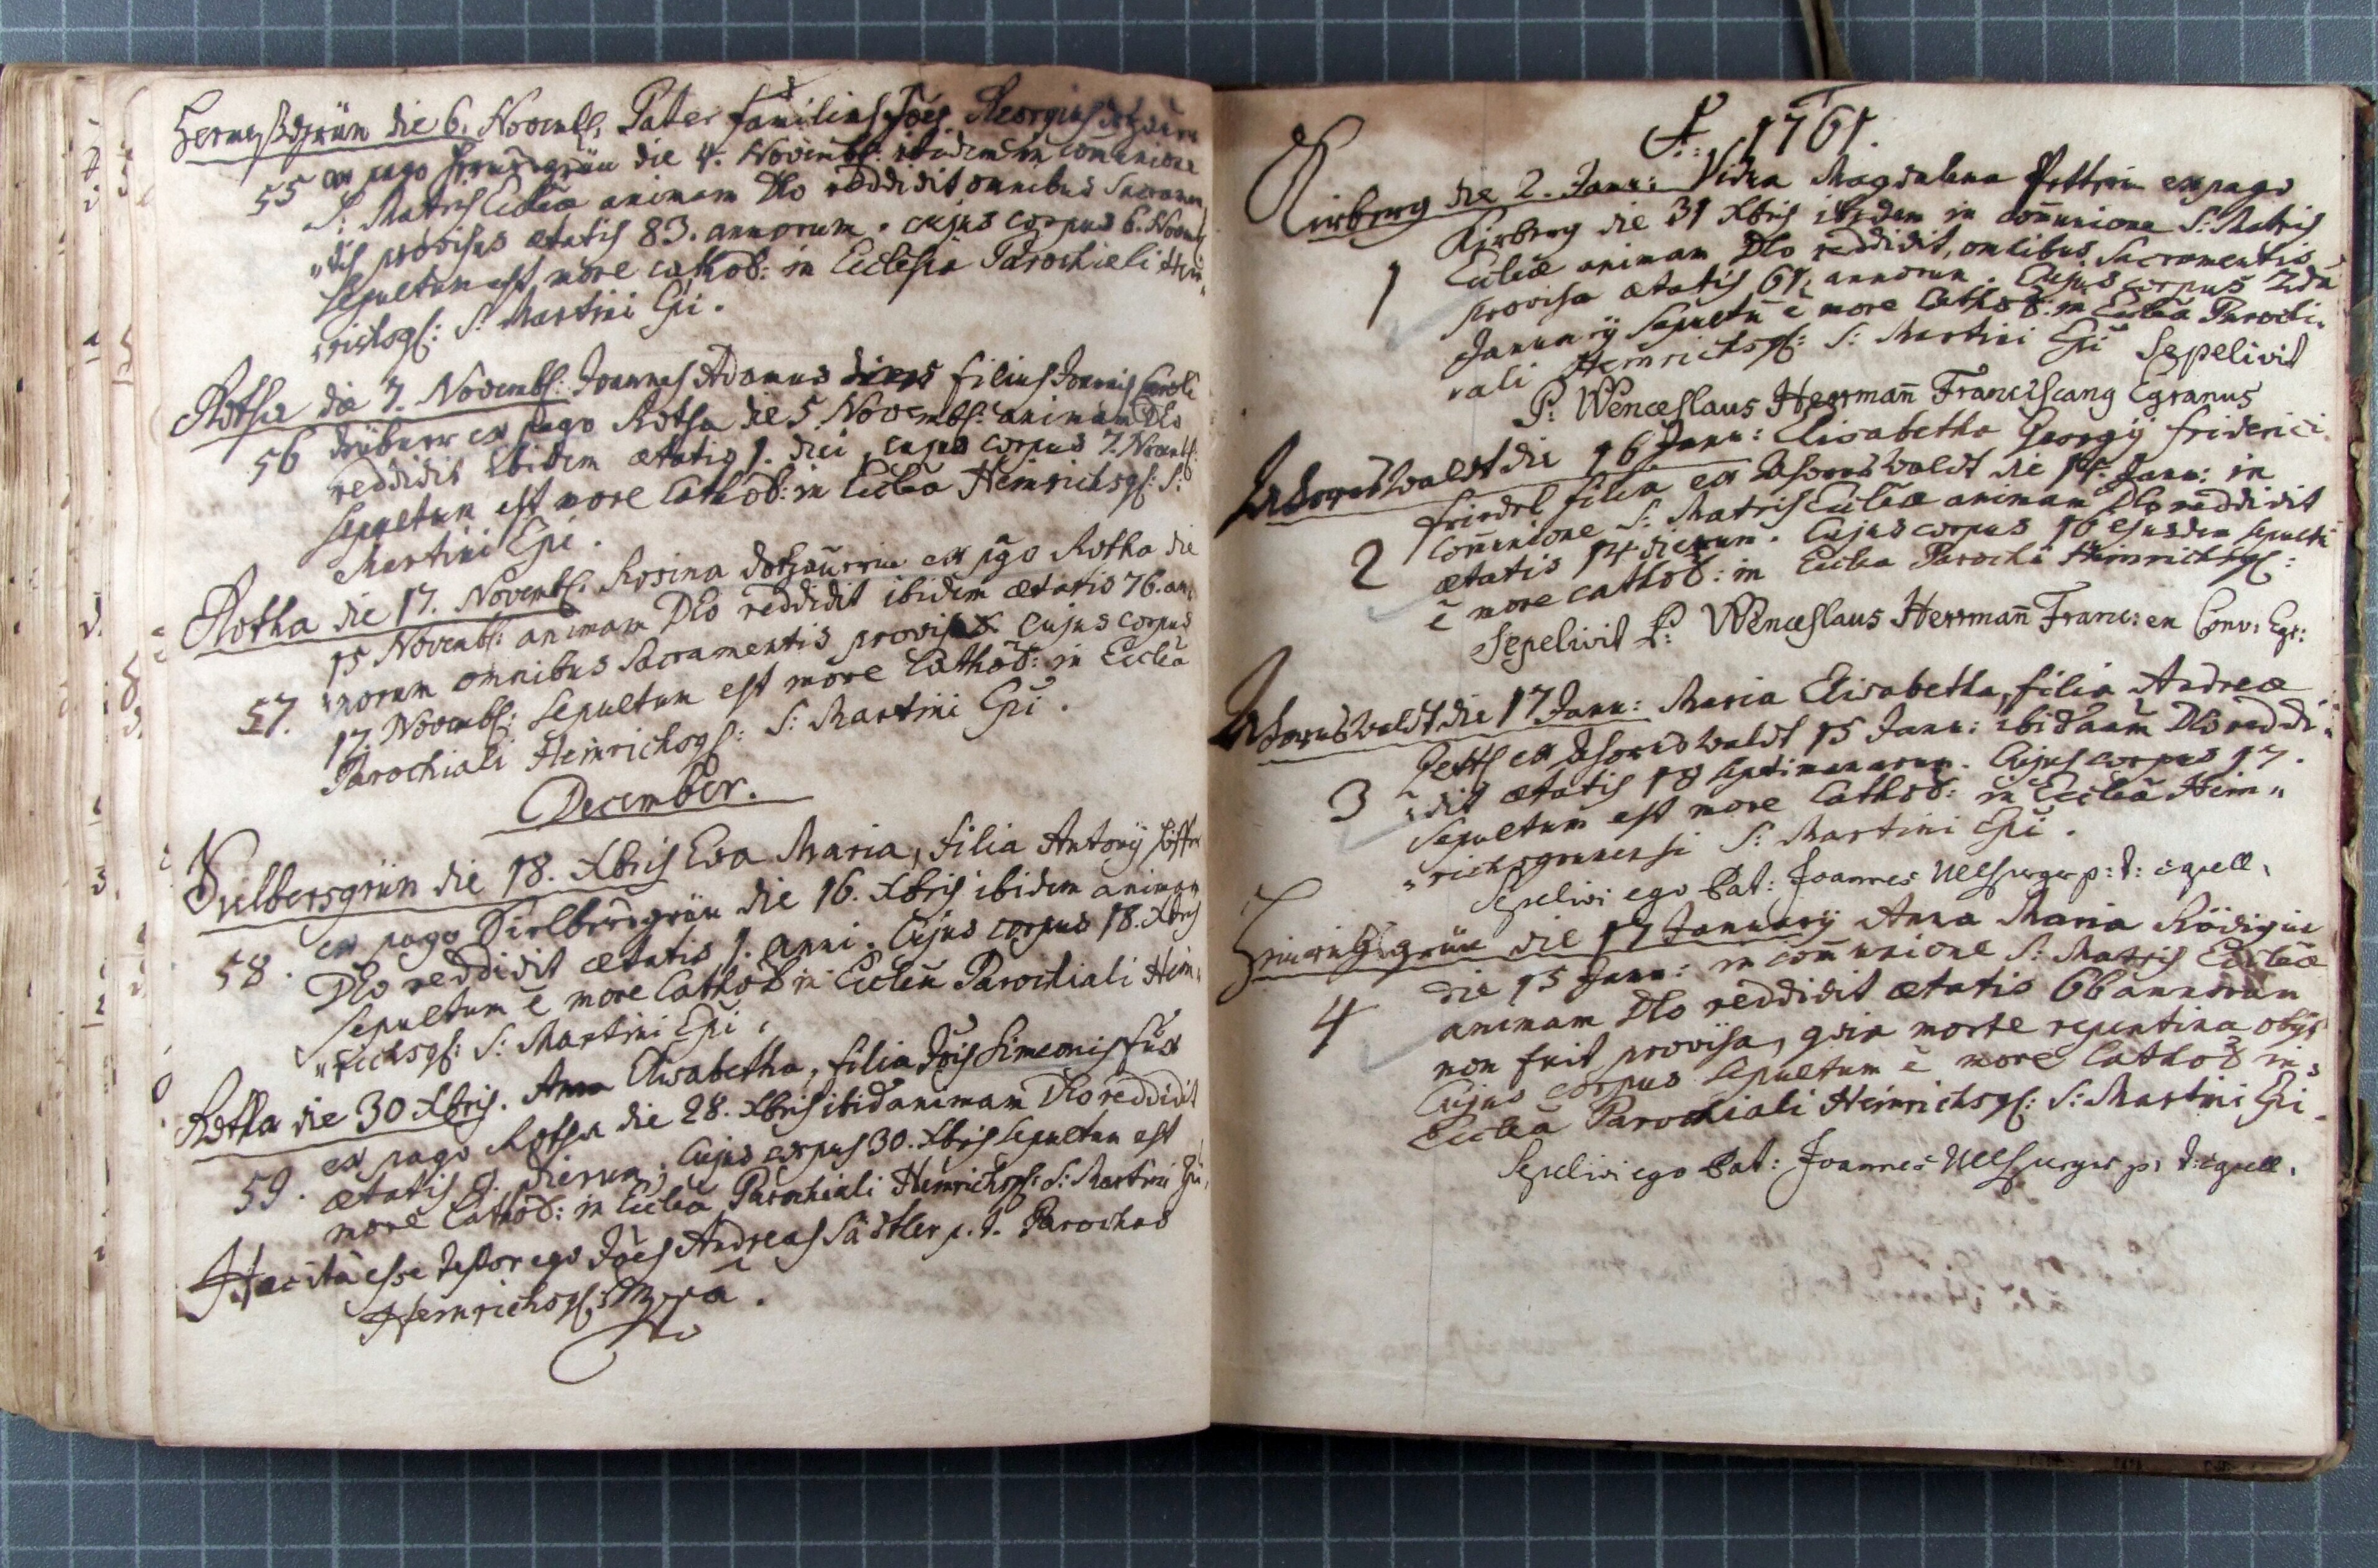 die 6. Novembl. Pater familias Joes Georgius
55 ex pago die 4. Novembl: ibidem in comunione
S: Matris Eccleæ animam Dło reddidit omnibus Sacramen„
„tis provisus ætatis 83. annorum. cujus corpus 6. Novemb
sepultum est more cathol: in Ecclesia Parochiali Hein„
„richsgl: S: Martini Epi.
Rotha die 7. Novembl: Joannes Adamus filius Joannis Caroli
56 ex pago Rotha die 5. Novembl: animam Dło
reddidit ibidem ætatis 1. diei, cujus corpus 7. Novembl:
sepultum est more Cathol: in Ecclea Heinrichsgl: S:
Martini Epi.
Rotha die 17. Novembl. Rosina ex pago Rotha die
15 Novembl: animam Dło reddidit ibidem ætatis 76. an„
57. „norum omnibus Sacramentis provisa cujus corpus
17. Novembl: sepultum est more Cathol: in Ecclea
Parochiali Heinrichsgl: S: Martini Epi.
December.
die 18. Xbris Eva Maria, filia Antonij
58. ex pago die 16. Xbris ibidem animam
Dło reddidit ætatis 1. anni. Cujus corpus 18. Xbris
sepultum ē more Cathol in Ecclea Parochiali Hein„
„richsgl: S: Martini Epi.
Rotha die 30 Xbris. Anna Elisabetha, filia Jois Simeonis
59. ex pago Rotha die 28. Xbris ibid animam Dło reddidit
ætatis 9. dierum, Cujus corpus 30. Xbris sepultum est
more Cathol: in Ecclea Parochiali Heinrichsgl: S: Martini Epi,
Hæc ita esse testor ego Joes Andreas Sädtler p. t. Parochus
Heinrichsgl:
A: 1761.
Kirberg die 2. Janu: Vidua Magdalena ex pago
Kirberg die 31 Xbris ibidem in comunione S: Matris
1 Eccleæ animam Dło reddidit, omnibus Sacramentis
provisa ætatis 61, annorum. Cujus corpus 2da
January sepultū ē more Cathol: in Ecclea Parochi„
„ali Heinrichsgl: S: Martini Epi Sepelivit
P: Wenceslaus Herrman̄ Franciscang Egranus
die 16 Janu: Elisabetha Georgÿ friderici
friedel filia ex die 14. Janu: in
2 Com̄unione S: Matris Eccleæ animam Dło reddidit
ætatis 14 dierum. Cujus corpus 16 ejusdem sepultū
ē more Cathol: in Ecclea Parochi Heinrichsgl:
Sepelivit P: Wenceslaus Herrman̄ Franc: en Conv: Egr:
die 17 Janu: Maria Elisabetha, filia Andreæ
ex 15 Janu: ibid anim̄ Dło reddi„
3 „dit ætatis 18 septimanarum. Cujus corpus 17.
Sepultum est more Cathol: in Ecclea Hein„
„richsgrunensi S: Martini Epi.
Sepelivi ego Pat: Joannes p: t:
die 17 January Anna Maria
die 15 Janu: in com̄unione S: Matris Eccleæ
4 animam Dło reddidit ætatis 66 annorum
non fuit provisa, quia morte repentina obÿt
Cujus corpus sepultum ē more Cathol in
Ecclea Parochiali Heinrichsgl: S: Martini Epi.
Sepelivi ego Pat: Joannes p: t: